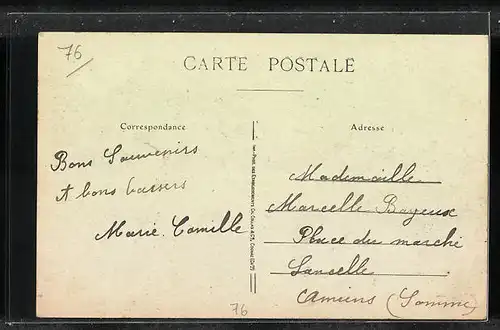 76
CARTE POSTALE
Correspondance
Adresse
Bons Souvenirs
et bons baisers
Marie. Camille
Mademoiselle
Marcelle Bayeux
Place du marché
Amiens (Somme)
76